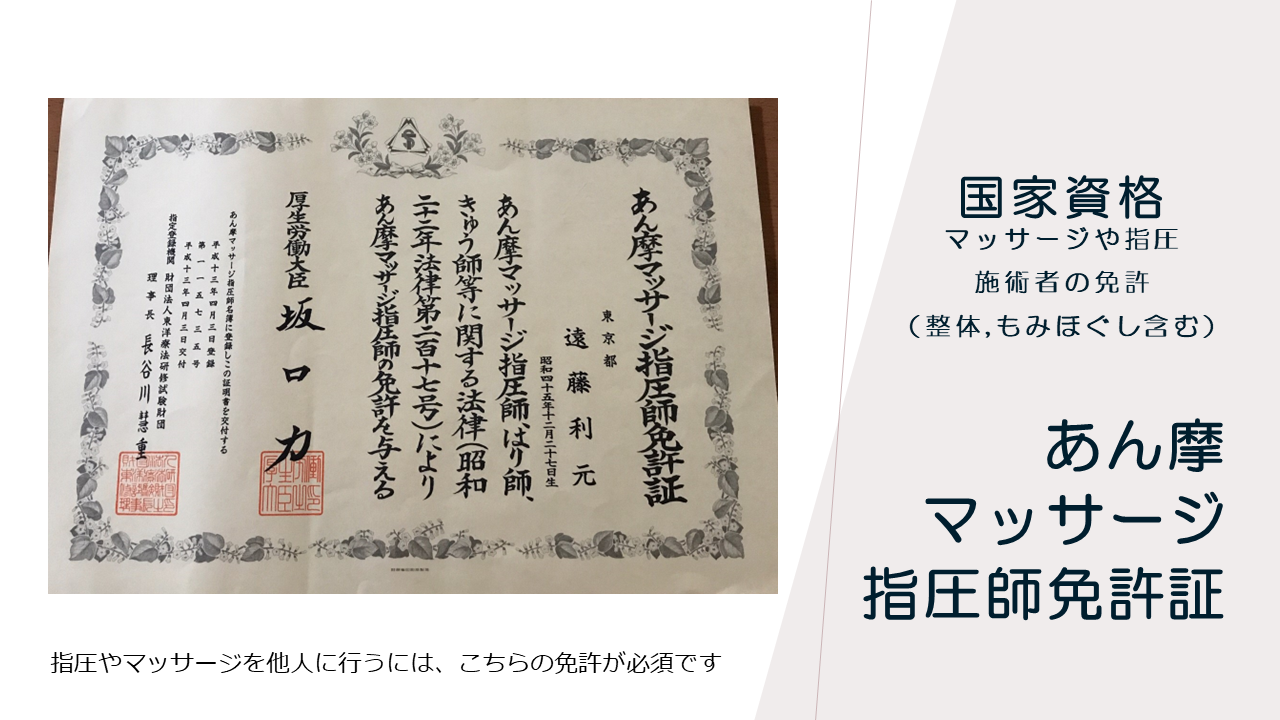 あん摩マッサージ指圧師免許証
東京都
遠藤利元
昭和四十五年十二月二十七日生
あん摩マッサージ指圧師、はり師、
きゅう師等に関する法律(昭和
二十二年法律第二百十七号)により
あん摩マッサージ指圧師の免許を与える
厚生労働大臣 坂口力
あん摩マッサージ指圧師名簿に登録しこの証明書を交付する
平成十三年四月三日登録
第一一五七三五号
平成十三年四月三日交付
指定登録機関 財団法人東洋療法研修試験財団
理事長 長谷川慧重
国家資格
マッサージや指圧
施術者の免許
(整体,もみほぐし含む)
あん摩
マッサージ
指圧師免許証
指圧やマッサージを他人に行うには、こちらの免許が必須です